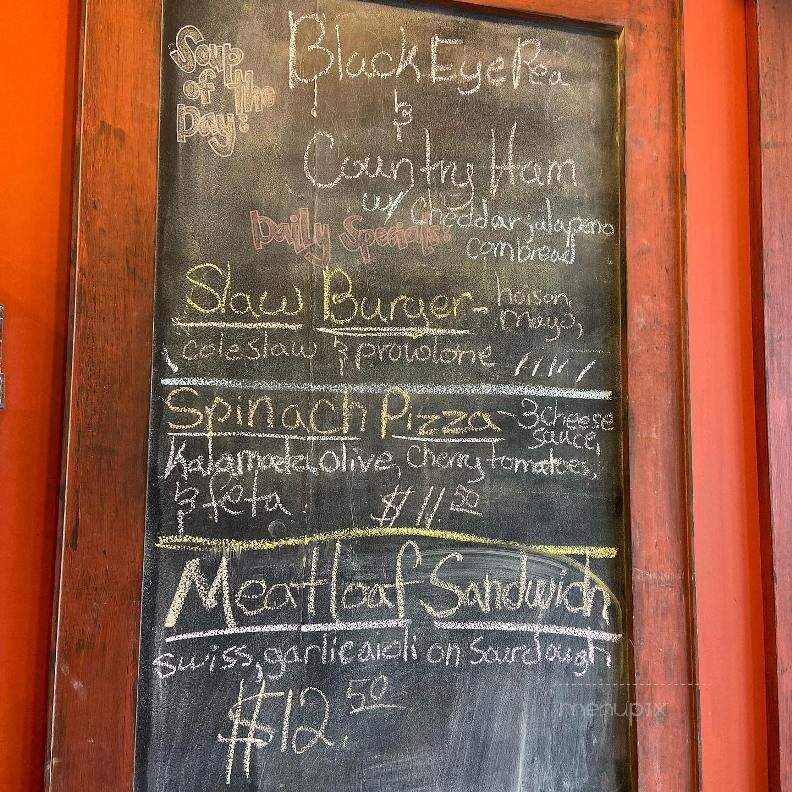 Soup
of the
Day:
Black Eye Pea
&
Country Ham
w/ cheddar jalapeno
cornbread
Daily Specials:
Slaw Burger - hoison,
mayo,
coleslaw & provolone
Spinach Pizza - 3 cheese
sauce,
Kalamata olive, cherry tomatoes,
& feta $11.50
Meatloaf Sandwich
swiss, garlic aioli on Sourdough
$12.50
menupix